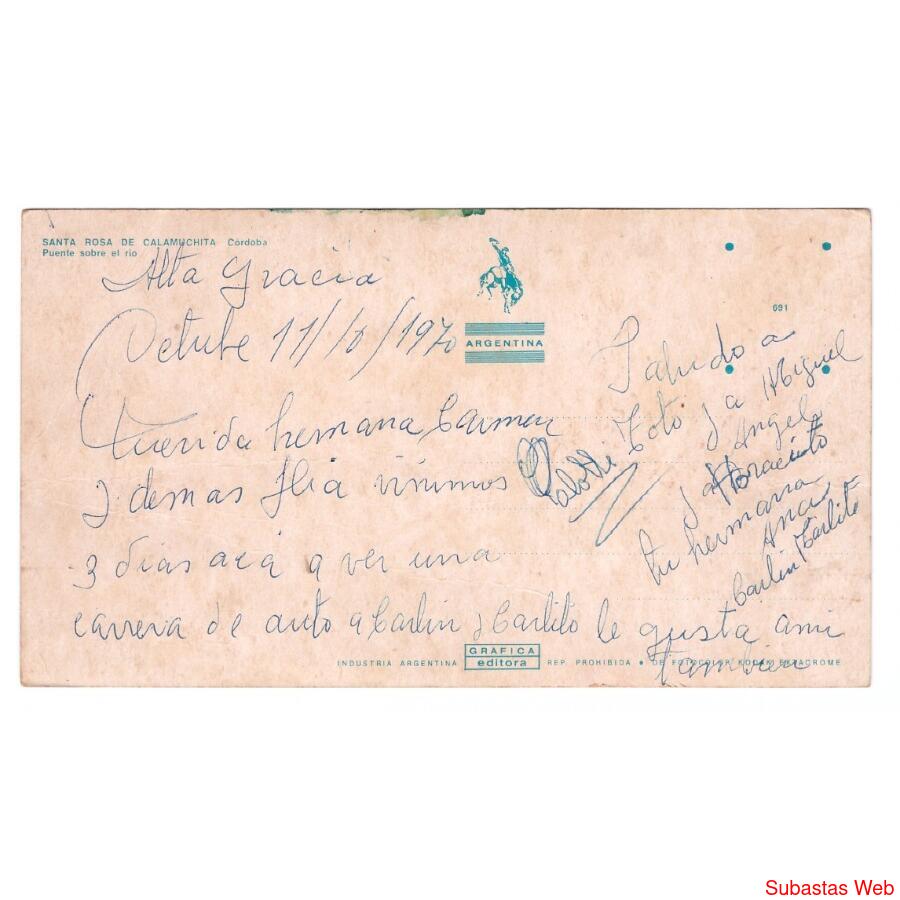 SANTA ROSA DE CALAMUCHITA Córdoba
Puente sobre el rio
Alta Gracia
Octube 11/10/1970
ARGENTINA
691
Querida hermana Carmen
y demas flia vinimos
3 dias acá a ver una
carrera de auto a Carlin y Carlito le gusta ami
tambien
Saludo a
Toto y a Miguel
Angel
y a
tu hermana
Ana
Carlin Carlito
GRAFICA
editora
INDUSTRIA ARGENTINA
REP. PROHIBIDA • DE FOTOCOLOR KODAK EKTACROME
Subastas Web